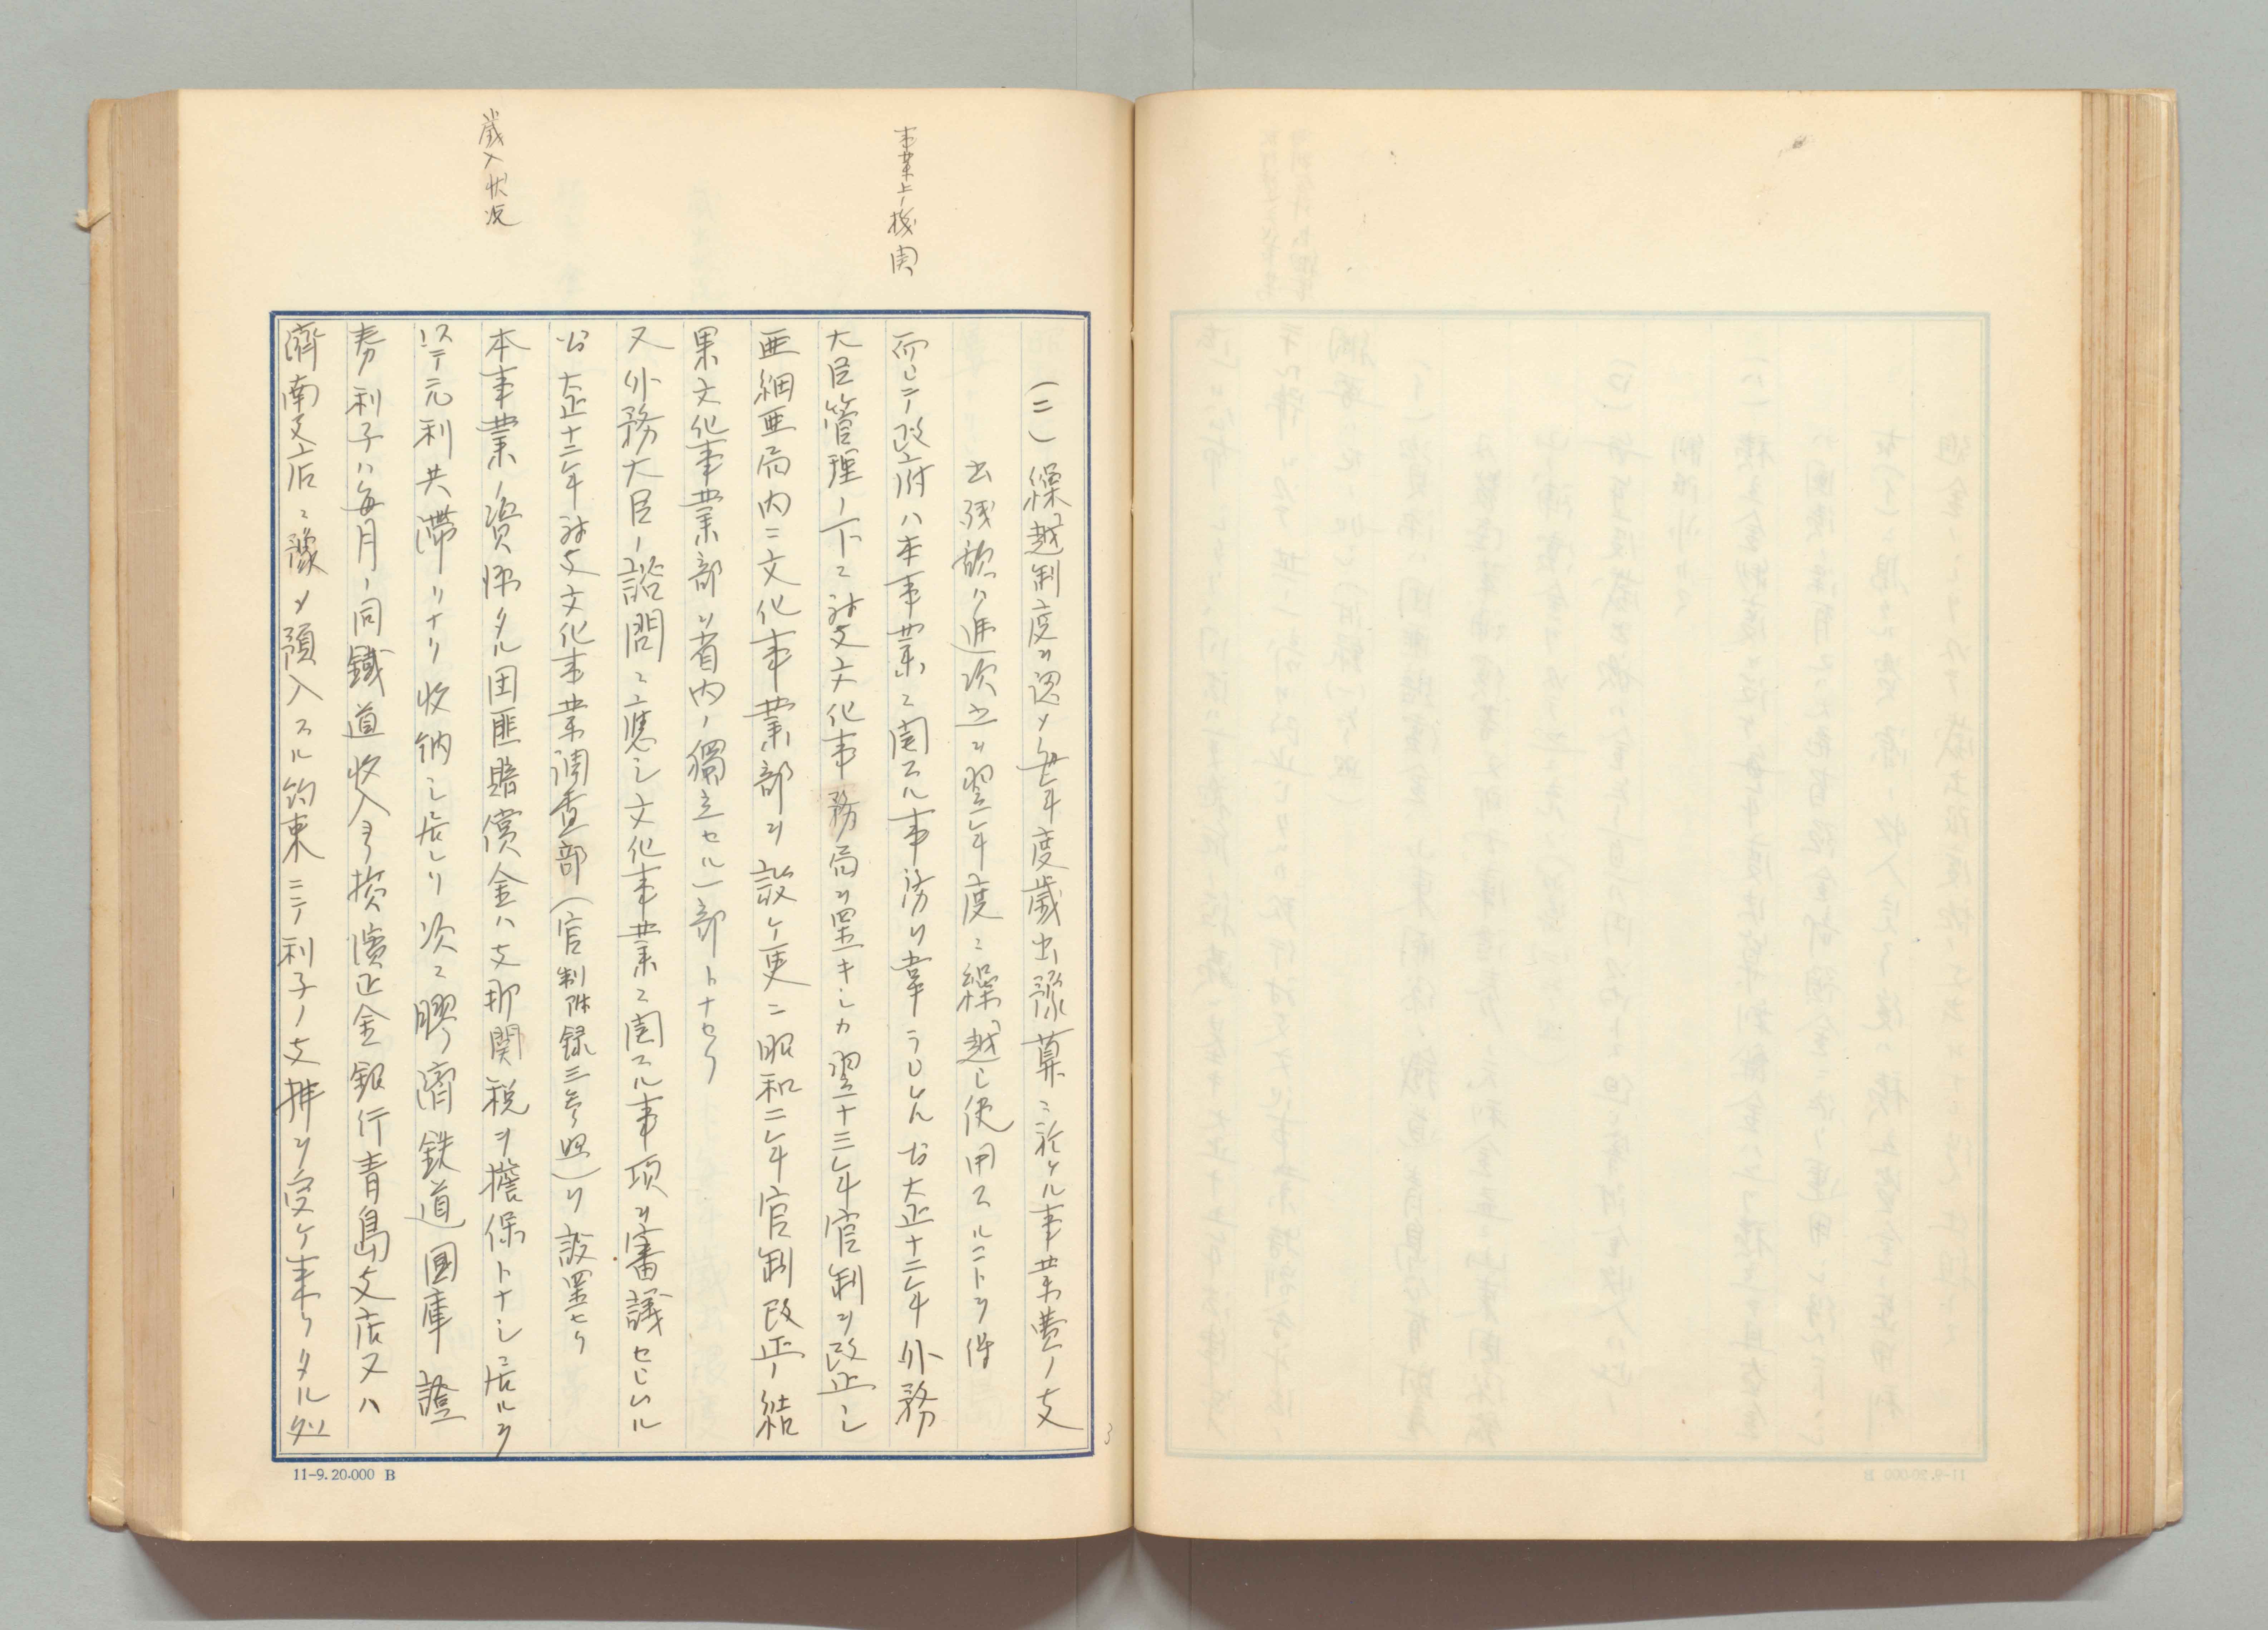 事業上ノ機関
歳入状況
(ニ) 繰越制度ヲ認メ毎年度歳出豫算ニ於ケル事業費ノ支
出残額ハ逓次之ヲ翌年度ニ繰越シ使用スルコトヲ得
而シテ政府ハ本事業ニ関スル事務ヲ掌ラシムル為大正十二年外務
大臣管理ノ下ニ対支文化事務局ヲ置キシカ翌十三年官制ヲ改正シ
亜細亜局内ニ文化事業部ヲ設ケ更ニ昭和二年官制改正ノ結
果文化事業部ヲ省内ノ獨立セル一部トナセリ
又外務大臣ノ諮問ニ應シ文化事業ニ関スル事項ヲ審議セシムル
為大正十二年対支文化事業調査部(官制附録三参照)ヲ設置セリ
本事業ノ資源タル団匪賠償金ハ支那関税ヲ擔保トナシ居ルヲ
以テ元利共滞リナク收納シ居レリ次ニ膠濟鉄道國庫證
券利子ハ毎月ノ同鐵道收入ヲ横濱正金銀行青島支店又ハ
濟南支店ニ豫メ預入スル約束ニテ利子ノ支拂ヲ受ケ来リタル処
3
11-9. 20.000 B